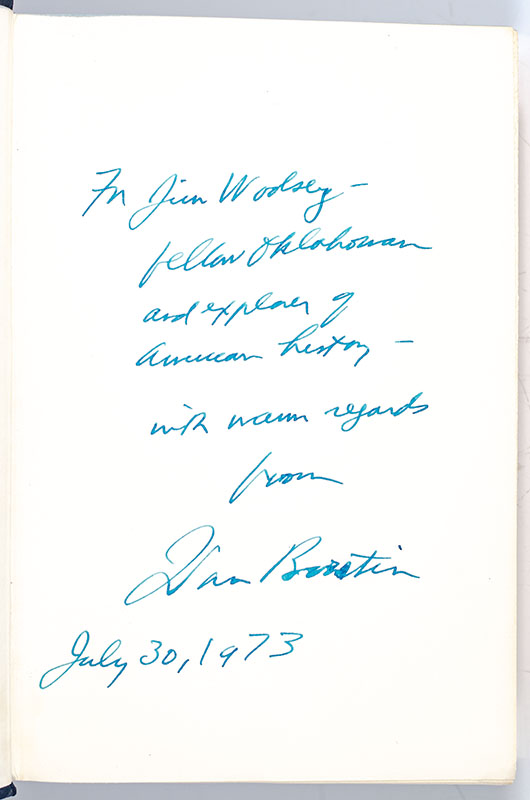 For Jim Woolsey –
fellow Oklahoman
and explorer of
American history –
with warm regards
from
Dan Boorstin
July 30, 1973